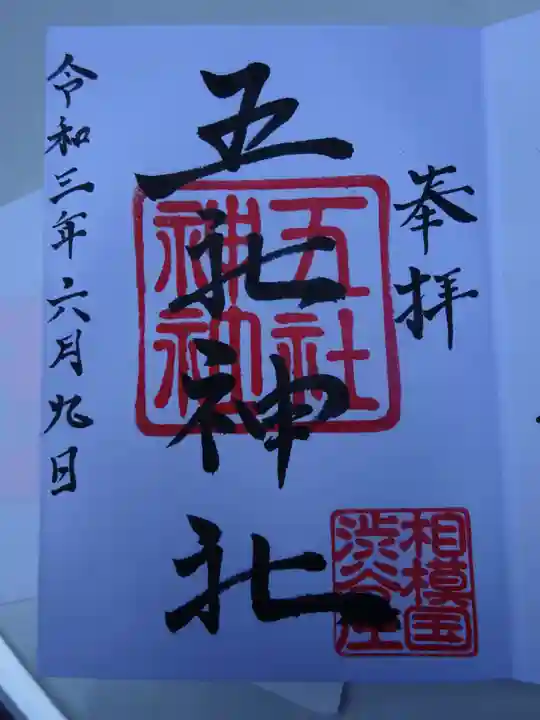 奉拝
五社神社
五社神社
相模国渋谷庄
令和三年六月九日